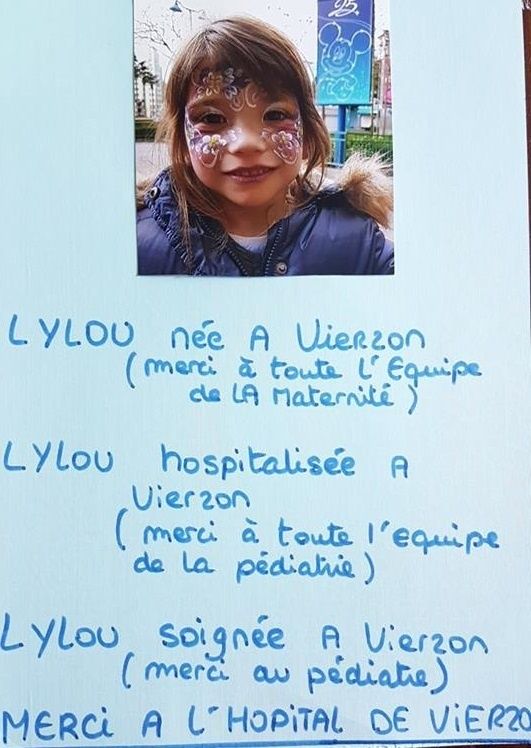 25
LYLOU née A Vierzon
(merci à toute L'Equipe
de LA Maternité)
LYLOU hospitalisée A
Vierzon
(merci à toute l'equipe
de la pédiatrie)
LYLOU soignée A Vierzon
(merci au pédiatre)
MERCI A L'HOPITAL DE ViERZO